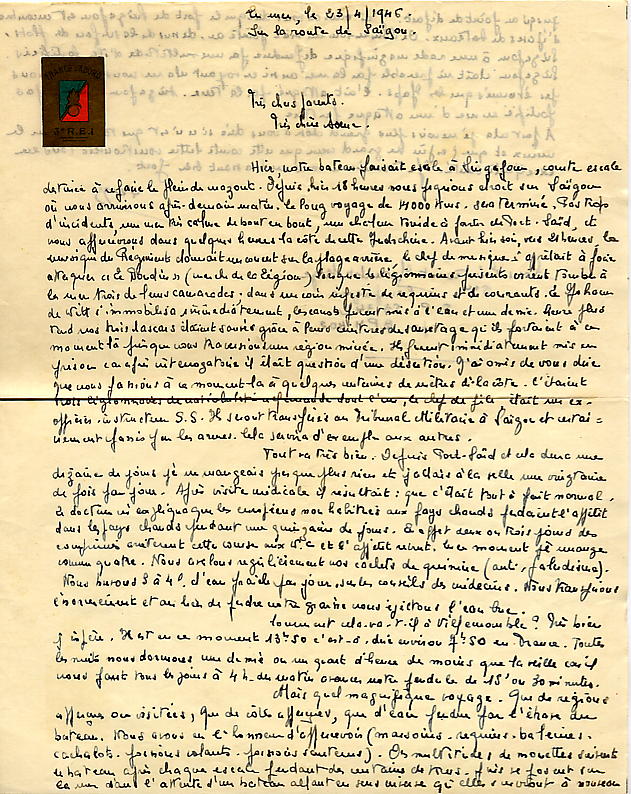 En mer, le 23/4/1946.
Sur la route de Saïgon.
FRANCE D'ABORD
3e R.E.I
Très chers parents.
Très chère soeur.
Hier, notre bateau faisait escale à Singapour, courte escale
destinée à refaire le plein de mazout. Depuis hier 18 heures nous piquons droit sur Saïgon
où nous arriverons après-demain matin. Le long voyage de 14000 kms. sera terminé. Pas trop
d'incidents, une mer très calme de bout en bout, une chaleur torride à partir de Port-Saïd, et
nous apercevrons dans quelques heures la côte de cette Indochine. Avant hier soir, vers 21 heures, la
musique du Régiment donnait un concert sur la plage arrière, le chef de musique s'apprêtait à faire
attaquer "Le Boudin" (marche de la Légion) lorsque les légionnaires présents virent tomber à
la mer trois de leurs camarades, dans un coin infesté de requins et de courants. Le Johan
de Witt s'immobilisa immédiatement, les canots furent mis à l'eau et une demie heure plus
tard nos trois lascars étaient sauvés grâce à leurs ceintures de sauvetage qu'ils portaient à ce
moment là puisque nous traversions une région minée. Ils furent immédiatement mis en
prison car après interrogatoire il était question d'une désertion. J'ai omis de vous dire
que nous passions à ce moment-là à quelques centaines de mètres de la côte. C'étaient
trois légionnaires de nationalité allemande dont l'un, le chef de file était un ex-
officier instructeur S.S. Ils seront transférés au Tribunal Militaire à Saïgon et certai-
nement passés par les armes. Cela servira d'exemple aux autres.
Tout va très bien. Depuis Port-Saïd et cela dura une
dizaine de jours je ne mangeais presque plus rien et j'allais à la selle une vingtaine
de fois par jour. Après visite médicale il résultait : que c'était tout à fait normal.
Le docteur m'expliqua que les européens non habitués aux pays chauds perdaient l'appétit
dans les pays chauds pendant une quinzaine de jours. En effet deux ou trois jours des
comprimés arrêtèrent cette course aux W.C et l'appétit revint. En ce moment je mange
comme quatre. Nous avalons régulièrement nos cachets de quinine (anti-paludisme).
Nous buvons 3 à 4 l. d'eau par jour, sur les conseils des médecins. Nous transpirons
énormément et au lieu de perdre notre graisse nous éjectons l'eau bue.
Comment cela va-t-il à Villemomble ? Très bien
j'espère. Il est en ce moment 13h50 c'est-à-dire environ 7h50 en France. Toutes
les nuits nous dormons une demie ou un quart d'heure de moins que la veille car il
nous faut tous les jours à 4 h. du matin avancer notre pendule de 15' ou 30 minutes.
Mais quel magnifique voyage. Que de régions
aperçues ou visitées, que de côtes aperçues, que d'eau fendue par l'étrave du
bateau. Nous avons eu l'honneur d'apercevoir (marsouins - requins - baleines -
cachalots - poissons volants - poissons sauteurs). Des multitudes de mouettes suivent
le bateau après chaque escale pendant des centaines de kms. puis se posent sur
la mer dans l'attente d'un bateau allant en sens inverse qu'elles suivront à nouveau